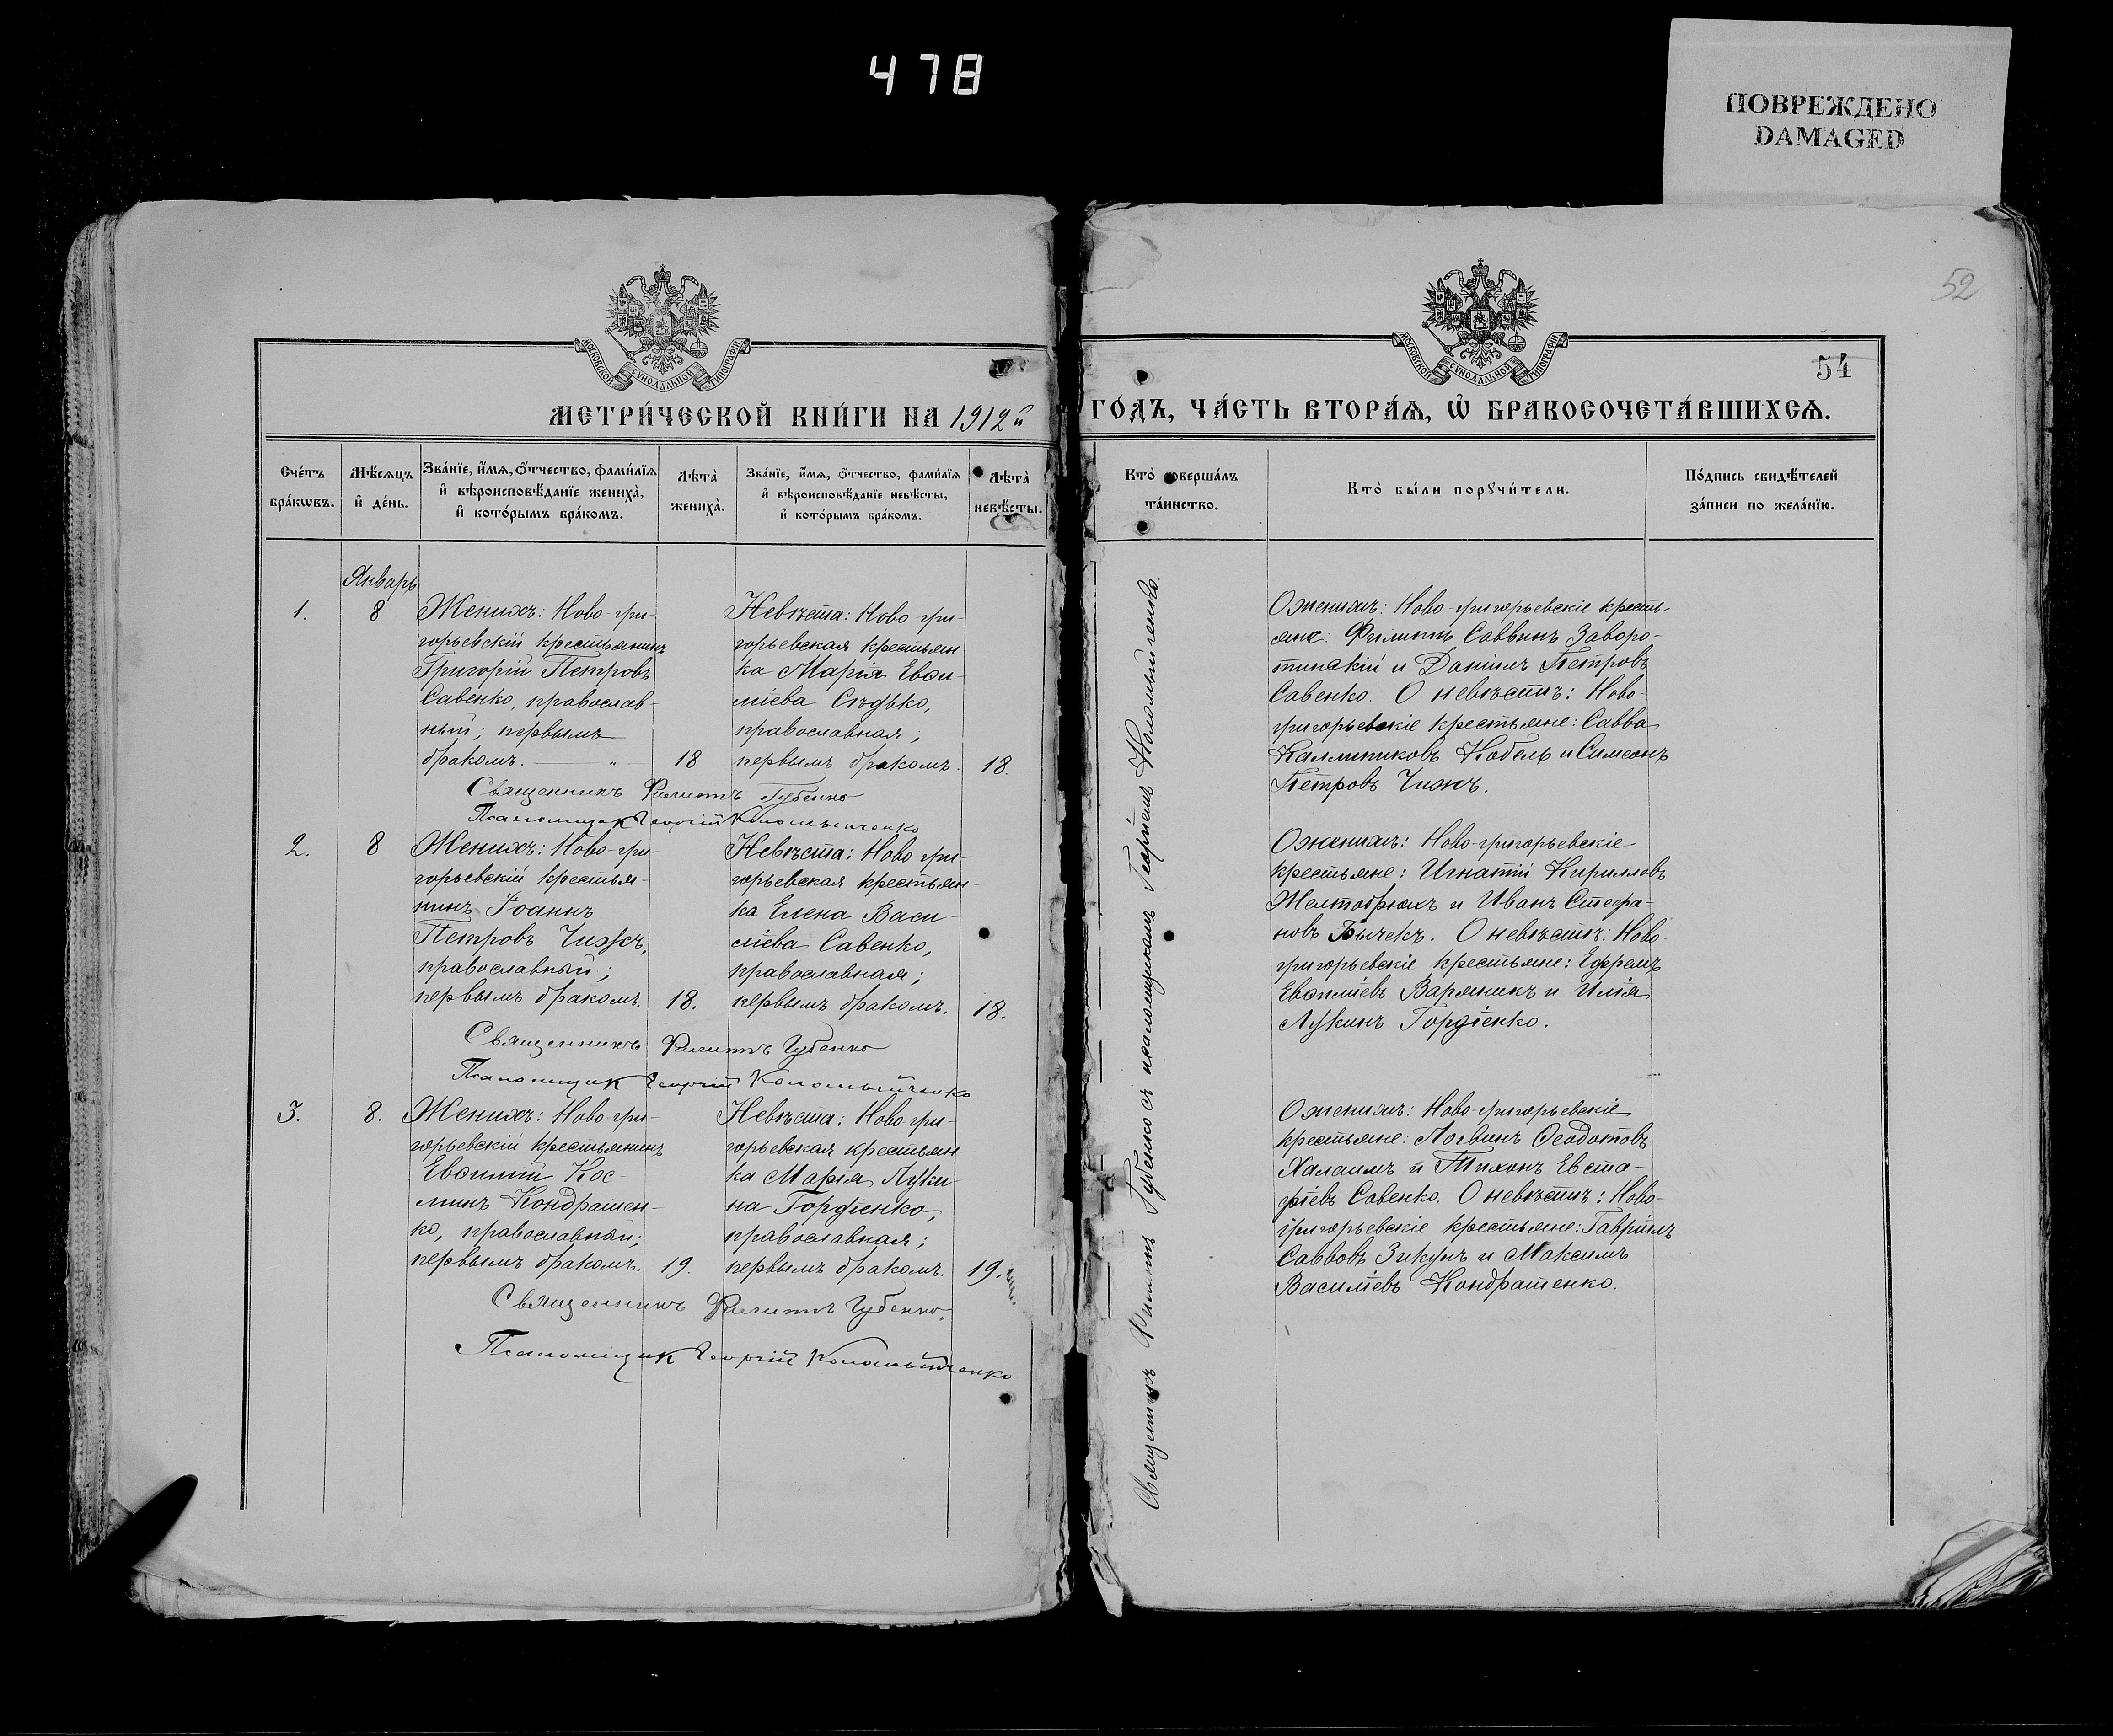 478
ПОВРЕЖДЕНО
DAMAGED
52
54
МОСКОВСКОЙ СѴНОДАЛЬНОЙ ТИПОГРАФІИ
МОСКОВСКОЙ СѴНОДАЛЬНОЙ ТИПОГРАФІИ
МЕТРИ́ЧЕСКОЙ КНИ́ГИ НА 1912й ГО́ДЪ, ЧА́СТЬ ВТОРА́Ѧ, Ѽ БРАКОСОЧЕТА́ВШИХСѦ.
Сче́тъ бра́кѡвъ.
Мѣ́сяцъ и҆ де́нь.
Зва́нїе, и҆́мя, ѻ҆́тчество, фами́лїя и҆ вѣроисповѣ́данїе жениха̀, и҆ кото́рымъ бра́комъ.
Лѣта̀ жениха̀.
Зва́нїе, и҆́мя, ѻ҆́тчество, фами́лїя и҆ вѣроисповѣ́данїе невѣ́сты, и҆ кото́рымъ бра́комъ.
Лѣта̀ невѣ́сты.
Кто̀ соверша́лъ та́инство.
Кто̀ бы́ли порꙋчи́тели.
По́дпись свидѣ́телей за́писи по жела́нїю.
Январь
1.
8
Женихъ: Ново-гри-
горьевскій крестьянинъ
Григорій Петровъ
Савенко, православ-
ный; первымъ
бракомъ.
18
Невѣста: Ново-гри-
горьевская крестьян
ка Марія Евѳи-
міева Сѣдько,
православная;
первымъ бракомъ.
18.
О женихѣ: Ново-григорьевскіе кресть-
яне: Филиппъ Саввинъ Заворо-
тинскій и Даніилъ Петровъ
Савенко. О невѣстѣ: Ново-
григорьевскіе крестьяне: Савва
Каллиниковъ Кобель и Симеонъ
Петровъ Чижъ.
Священникъ Филиппъ Губенко
Псаломщик Георгій Коломыйченко
2.
8
Женихъ: Ново-гри-
горьевскій крестья-
нинъ Іоаннъ
Петровъ Чижъ,
православный;
первымъ бракомъ.
18.
Невѣста: Ново-гри-
горьевская крестьян-
ка Елена Васи-
ліева Савенко,
православная;
первымъ бракомъ.
18.
О женихѣ: Ново-григорьевскіе
крестьяне: Игнатій Кирилловъ
Желтобрюхъ и Иванъ Стефа-
новъ Бычекъ. О невѣстѣ: Ново-
григорьевскіе крестьяне: Ефремъ
Евѳиміевъ Вареникъ и Илія
Лукинъ Гордіенко.
Священникъ Филиппъ Губенко
Псаломщик Георгій Коломыйченко
3.
8.
Женихъ: Ново-гри-
горьевскій крестьянинъ
Евѳимій Кос-
минъ Кондратен-
ко, православный;
первымъ бракомъ.
19.
Невѣста: Ново-гри-
горьевская крестьян-
ка Марія Луки-
на Гордіенко,
православная;
первымъ бракомъ.
19.
О женихѣ: Ново-григорьевскіе
крестьяне: Логвинъ Ѳеодотовъ
Халаимъ и Тихонъ Евста-
фіевъ Савенко. О невѣстѣ: Ново-
григорьевскіе крестьяне: Гавріилъ
Саввовъ Зикунъ и Максимъ
Василіевъ Кондратенко.
Священникъ Филиппъ Губенко,
Псаломщик Георгій Коломыйченко
Священникъ Филиппъ Губенко съ псаломщикомъ Георгіемъ Коломыйченко.